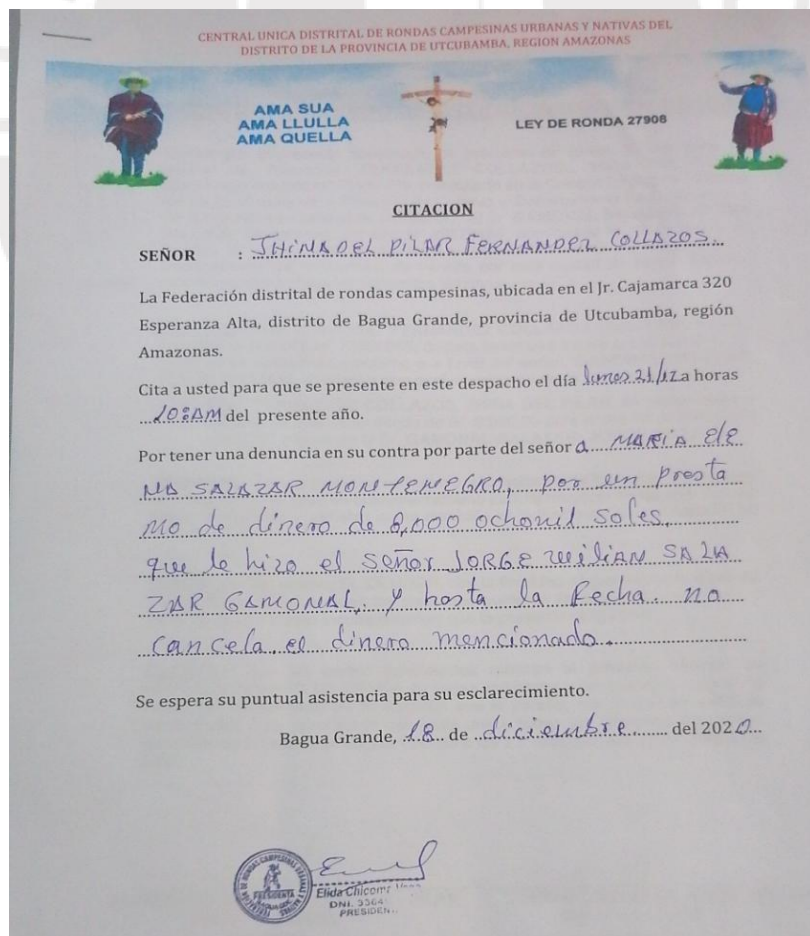 CENTRAL UNICA DISTRITAL DE RONDAS CAMPESINAS URBANAS Y NATIVAS DEL
DISTRITO DE LA PROVINCIA DE UTCUBAMBA, REGION AMAZONAS
AMA SUA
AMA LLULLA
AMA QUELLA
LEY DE RONDA 27908
CITACION
SEÑOR : JHINA DEL PILAR FERNANDEZ COLLAZOS.
La Federación distrital de rondas campesinas, ubicada en el Jr. Cajamarca 320
Esperanza Alta, distrito de Bagua Grande, provincia de Utcubamba, región
Amazonas.
Cita a usted para que se presente en este despacho el día lunes 21/12 a horas
10:AM del presente año.
Por tener una denuncia en su contra por parte del señor a MARIA ELE
NA SALAZAR MONTENEGRO, por un presta
mo de dinero de 8,000 ochomil soles,
que le hizo el señor JORGE WILIAN SALA
ZAR GAMONAL. y hasta la fecha no
cancela el dinero mencionado.
Se espera su puntual asistencia para su esclarecimiento.
Bagua Grande, 18 de diciembre del 2020
PRESIDENTA
Elida Chicoma
DNI. 3364